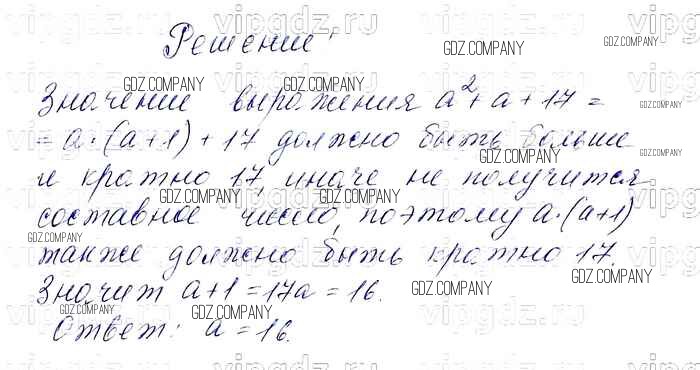 Решение
Значение выражения a²+a+17 =
= a·(a+1)+17 должно быть больше
и кратно 17, иначе не получится
составное число, поэтому a·(a+1)
также должно быть кратно 17.
Значит a+1=17a=16.
Ответ: a=16.